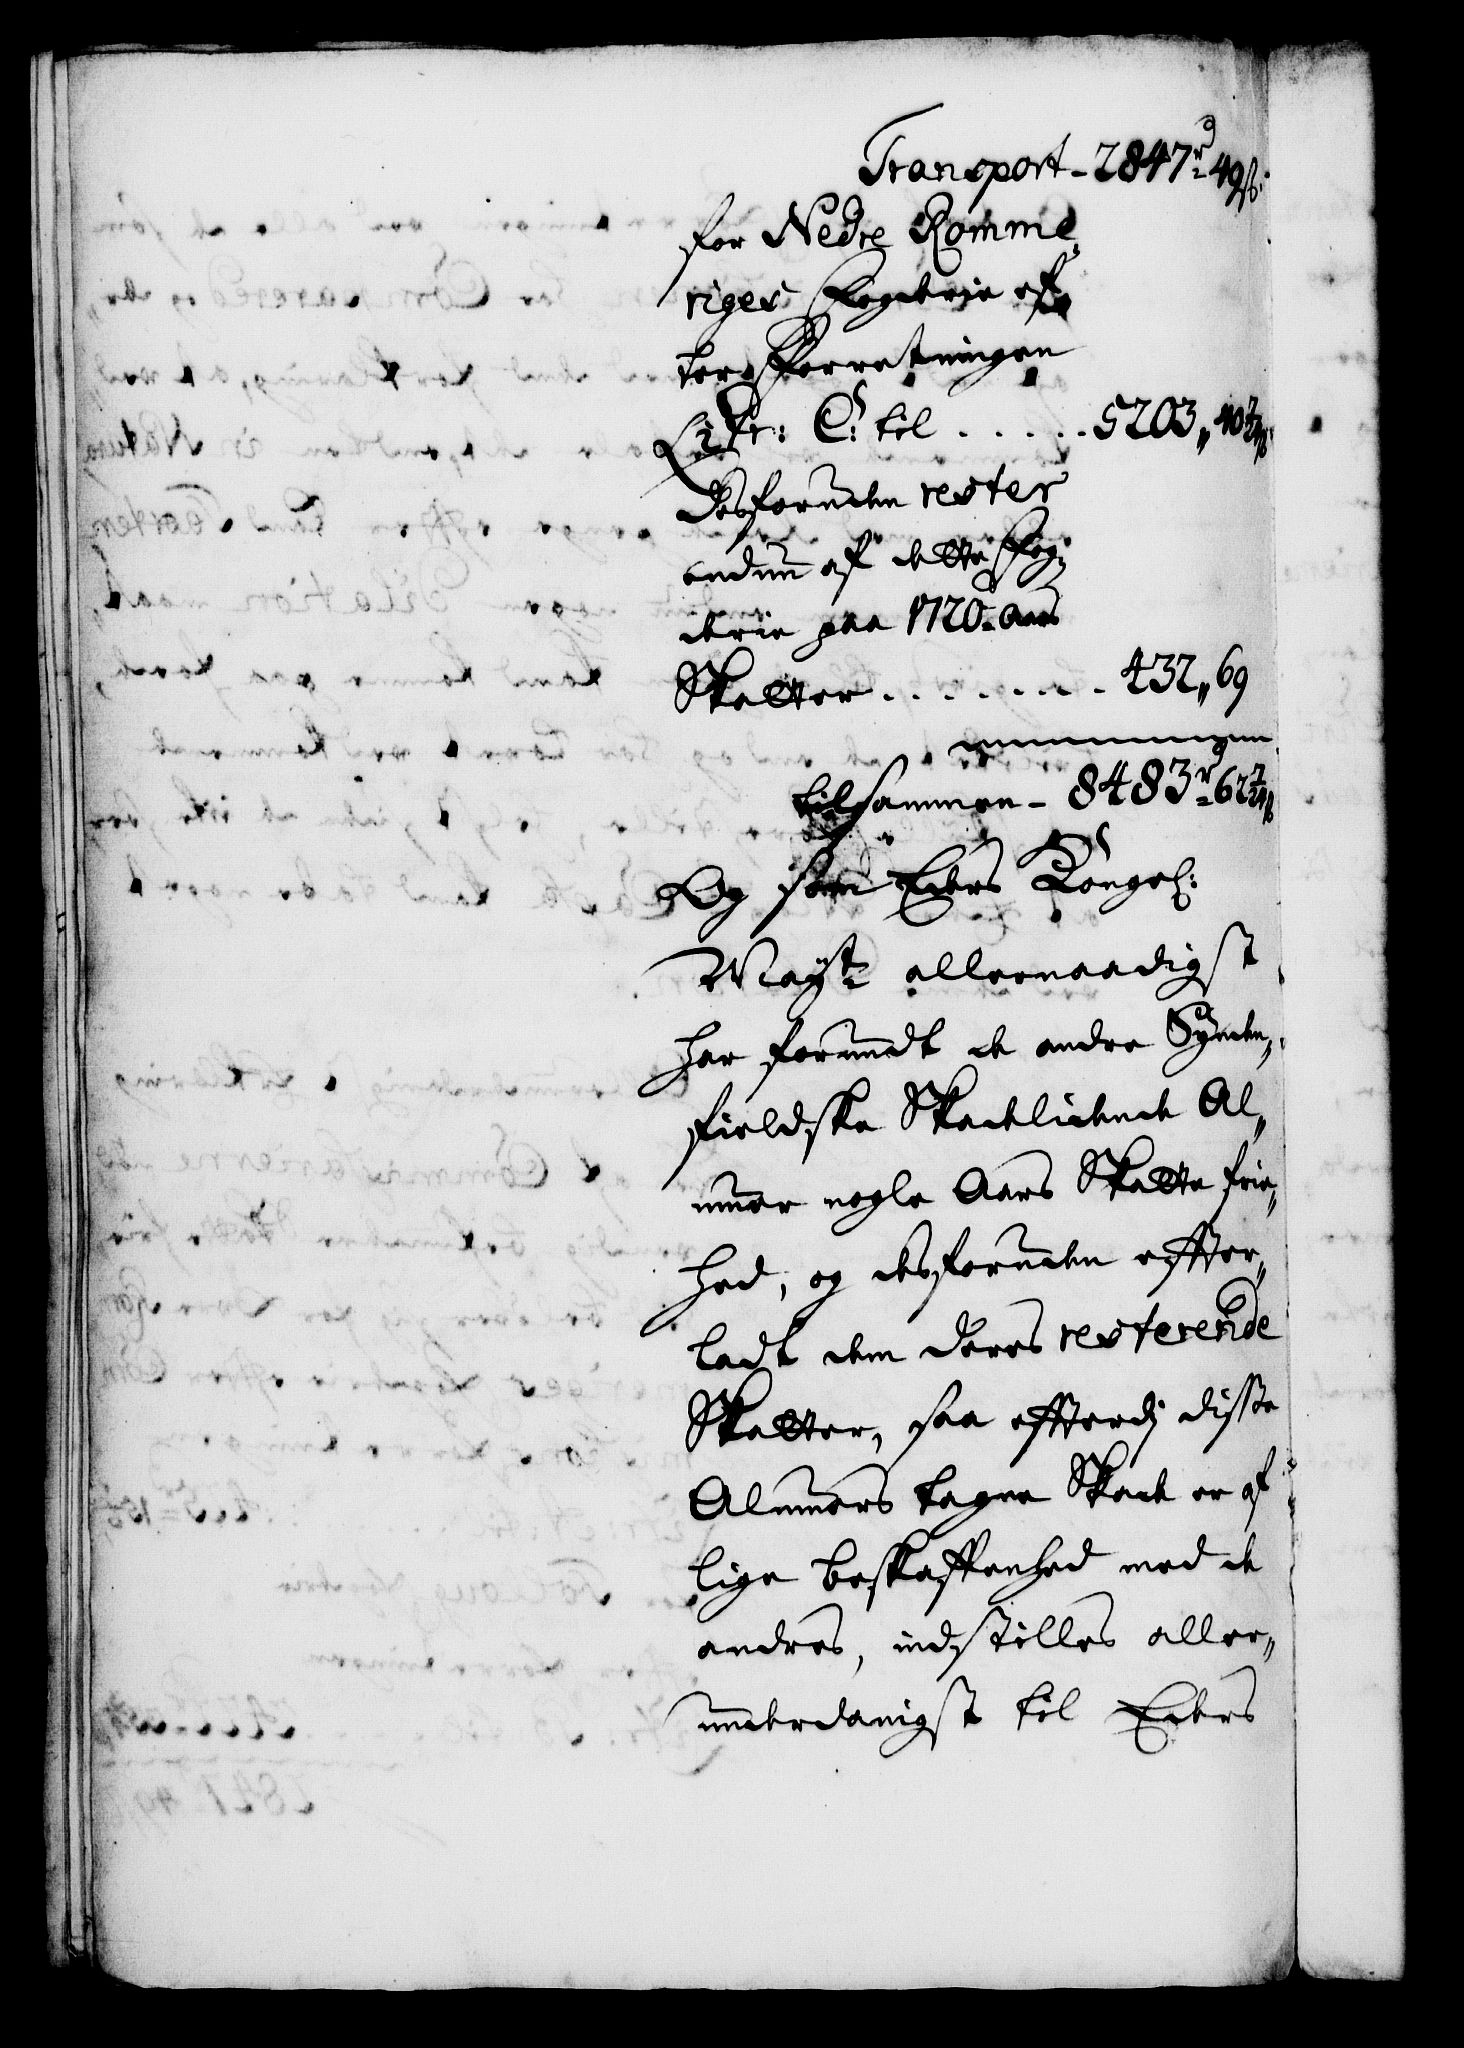 Transport - 2847 rd 49 ß.
for Nedre Romme¬
riges Fogderie ef¬
ter Forretningen
Litr: C: til . . . . . 5203 „ 40 1/2 ß
desforuden rester
endnu af dette Fog¬
derie paa 1720. Aars
Skatter . . . . . . . . 432 „ 69
tilsammen - 8483 rd 62 1/2 ß
Og som Eders Kongel:
Mayt allernaadigst
har forundt de andre Synden„
fieldske Skadelidende Al„
muer nogle Aars Skatte frie„
hed, og desforuden efter„
ladt dem deres resterende
Skatter, saa efterdj disse
Almuers tagne Skade er af
lige beskaffenhed med de
andres, indstilles aller„
underdanigst til Eders